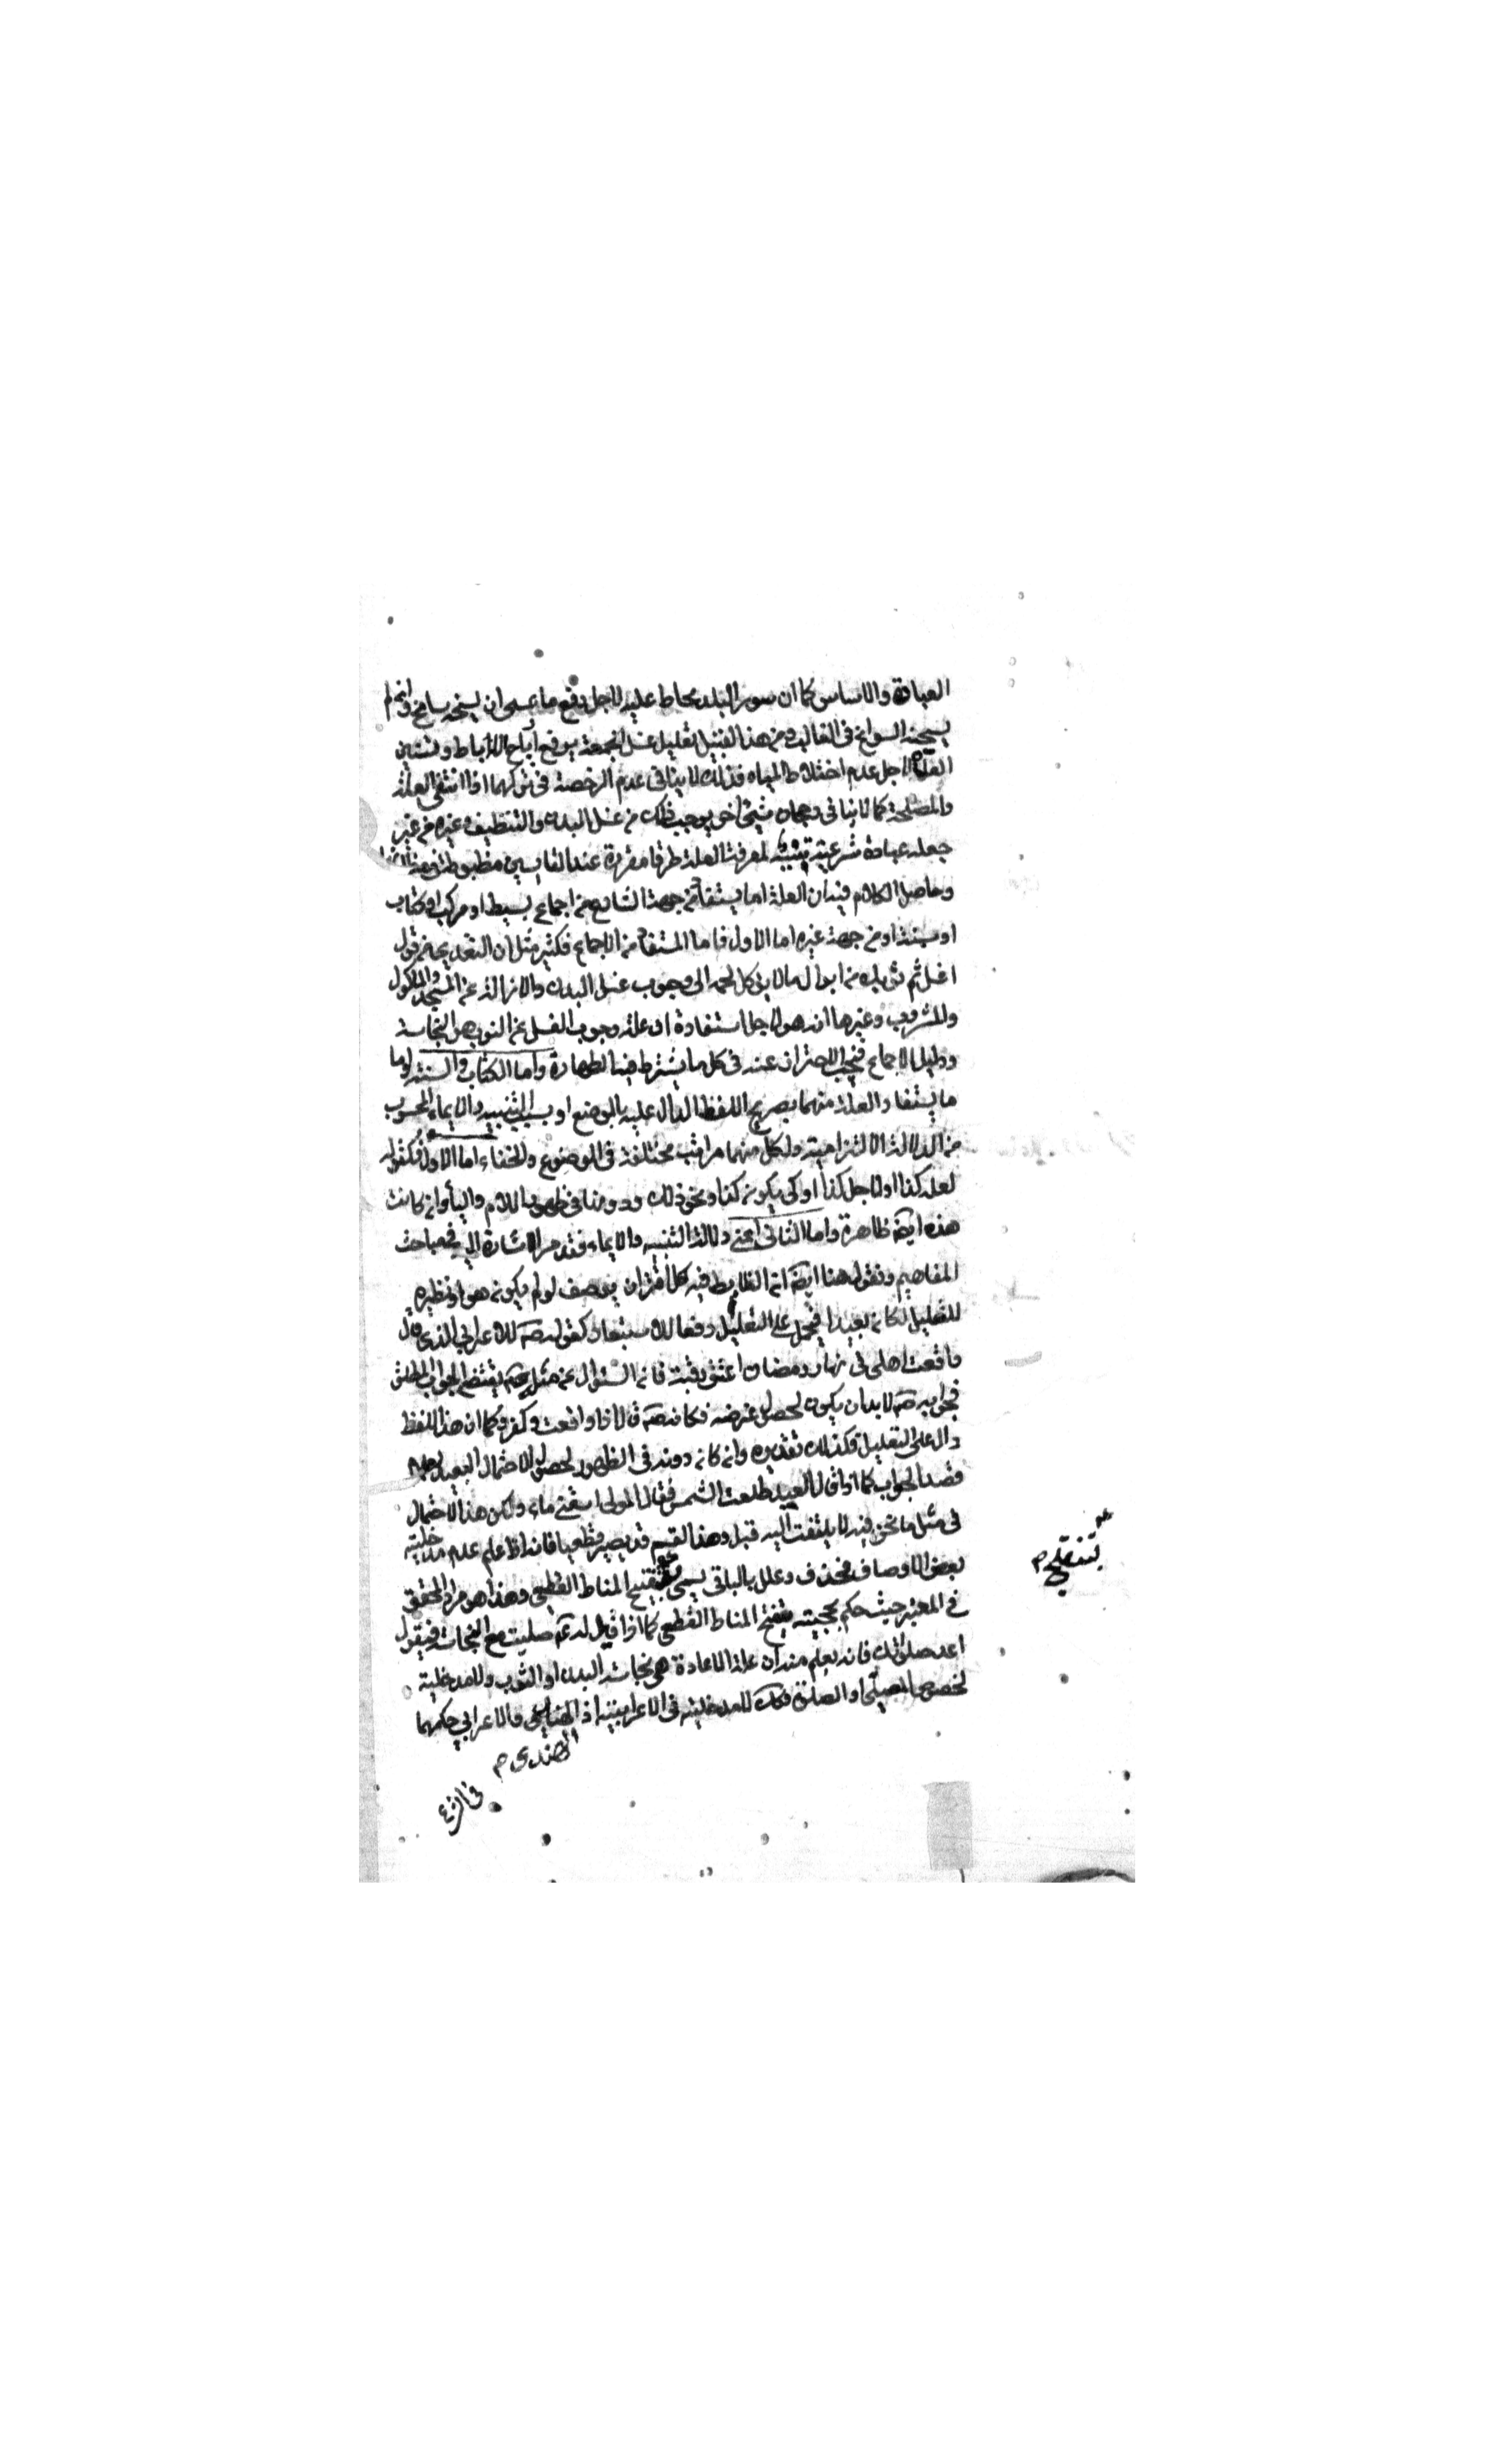 العبادة والاساس كما ان سور البلد يحاط عليه لاجل دفع ما عسى ان يسنحه سانح وان لم
يسنحه السوانح فى الغالب ومن هذا القبيل تعليل غسل الجمعة برفع ارياح الاباط وتسنين
العدة لاجل عدم اختلاط المياه فذلك لا ينافى عدم الرخصة فى تركهما اذا انتفى العلة
والمصلحة كما لا ينافى رجحان شيئ اخر يوجب ذلك من غسل البدن والتنظيف وغيره من غير
جعله عبادة شرعية لمعرفة العلة طرقا مقررة عند القايسين
وحاصل الكلام فيه ان العلة اما يستفاد من جهة الشارع من اجماع بسيط او مركب او كتاب
او سنة او من جهة غيره اما الاول فاما المستفاد من الاجماع فكثير مثل ان التعدى من قول
اغسل ثوبك من ابوال ما لا يؤكل لحمه الى وجوب غسل البدن والازالة عن المسجد والماكول
والمشروب وغيرها انه هو لاجل استفادة ان علة وجوب الغسل عن الثوب هو النجاسة
ودليله الاجماع فيجب الاحتراز عنه فى كل ما يشترط فيه الطهارة واما الكتاب والسنة واما
ما يستفاد العلة منهما بصريح اللفظ الدال عليه بالوضع او بسبب التنبيه والايماء المحسوب
من الدلالة الالتزامية ولكل منهما مراتب مختلفة فى الوضوح والخفاء اما الاول فكقوله
لعلة كذا او لاجل كذا او كى يكون كذا ونحو ذلك ودونها فى ظهور اللام والباء وان كانت
هذه ايضه ظاهرة واما الثانى اعنى دلالة التنبيه والايماء فقد مر الاشارة اليه فى مباحث
المفاهيم ونقول هنا ايضه ان الضابط فيه كل اقتران بوصف لو لم يكن هو او نظيره
للتعليل لكان بعيدا فيحمل على التعليل دفعا للاستبعاد كقوله صه للاعرابى الذى قال
واقعت اهلى فى نهار رمضان اعتق رقبة فان السؤال عن مثله يقتضى الجواب
فجوابه صه لا بد ان يكون لحصول غرضه فكانه صه قال اذا واقعت فكفر وكما ان هذا اللفظ
دال على التعليل فكذلك تقديره وان كان دونه فى الظهور لحصول الاحتمال البعيد بعدم
قصد الجواب كما اذا قال العبد طلعت الشمس فقال المولى اسقنى ماء ولكن هذا الاحتمال
فى مثل ما نحن فيه لا يلتفت اليه قيل وهذا القسم قد يصير قطعيا فانه اذا علم عدم مدخلية
بعض الاوصاف فحذف وعلل بالباقى يسمى تنقيح المناط القطعى وهذا هو مراد المحقق
فى المعتبر حيث حكم بحجية تنقيح المناط القطعى كما اذا قيل له عه صليت مع النجاسة فيقول
اعد صلوتك فانه يعلم منه ان علة الاعادة هى نجاسة البدن او الثوب ولا مدخلية
لخصوص المصلى او الصلوة فكك لا مدخلية فى الاعرابية اذ الهندى والاعرابى حكمهما
الهندى م
تنقيح م